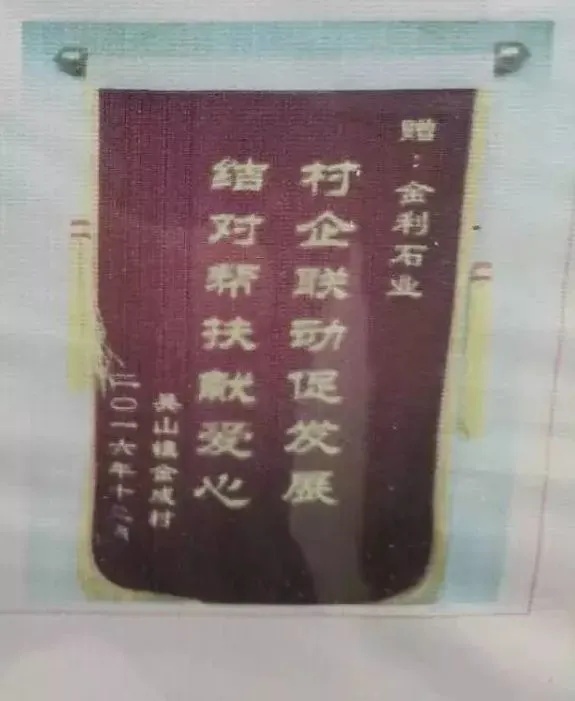 赠：金利石业
村企联动促发展
结对帮扶献爱心
吴山镇金成村
二〇一六年十二月